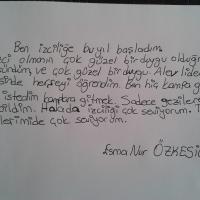 Ben izciliğe bu yıl başladım.
ci olmanın çok güzel bir duygu olduğ
ündüm ve çok güzel bir duygu. Alev lider
sinde herşeyi öğrendim. Ben hiç kampa g
istedim kamplara gitmek. Sadece gezilere
bildim. Halada izciliği çok seviyorum.
lerimide çok seviyorum.
Esma Nur ÖZKESİC